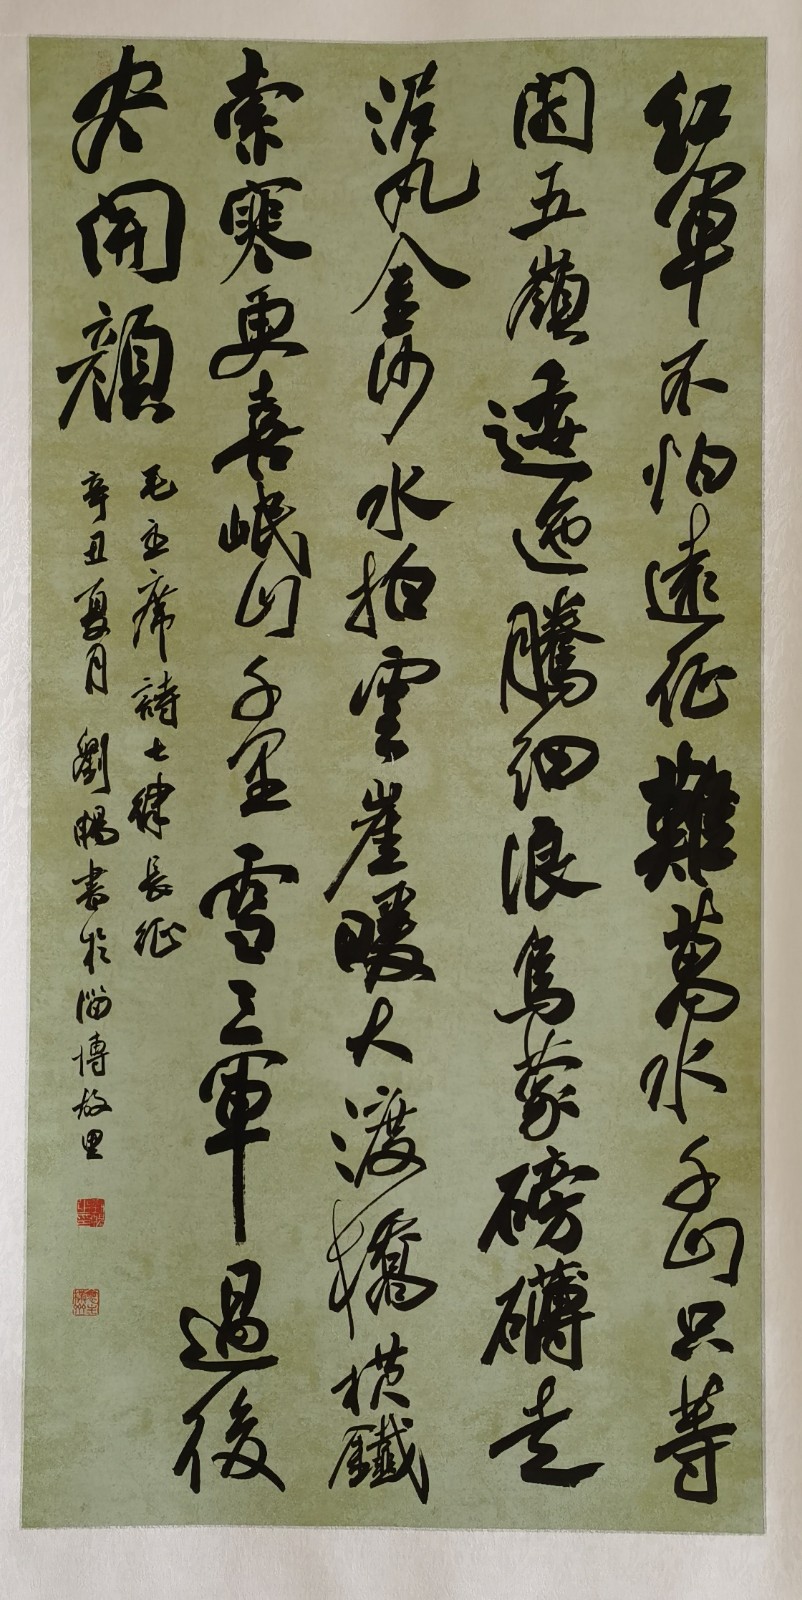 红軍不怕遠征難萬水千山只等
閑五嶺逶迤騰细浪烏蒙磅礴走
泥丸金沙水拍雲崖暖大渡橋横鐵
索寒更喜岷山千里雪三軍過後
尽開顔
毛主席詩七律長征
辛丑夏月劉暢書於淄博故里